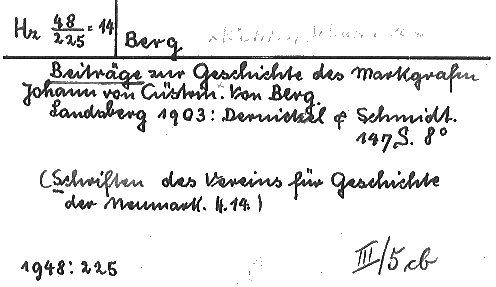 Hz 48/225 = 14
Berg
Beiträge zur Geschichte des Markgrafen
Johann von Cüstrin. Von Berg.
Landsberg 1903: Dermietzel & Schmidt.
147 S. 8°
(Schriften des Vereins für Geschichte
der Neumark. H. 14.)
1948: 225
III/5 cb